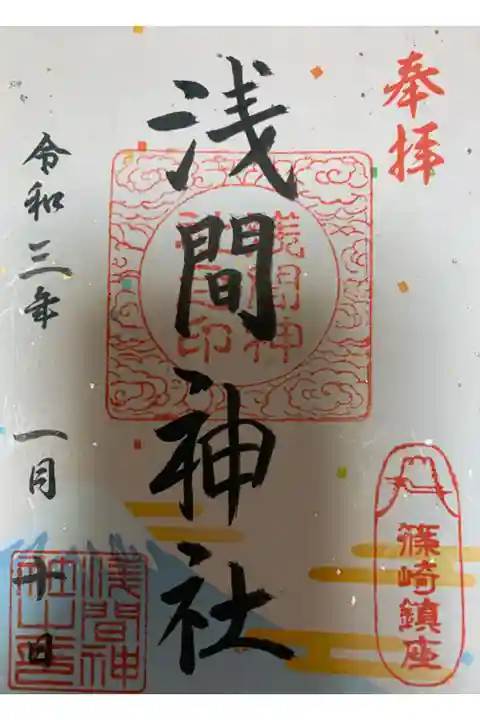 奉拝
篠崎鎮座
浅間神社
浅間神社之印
令和三年 一月 十日
浅間神